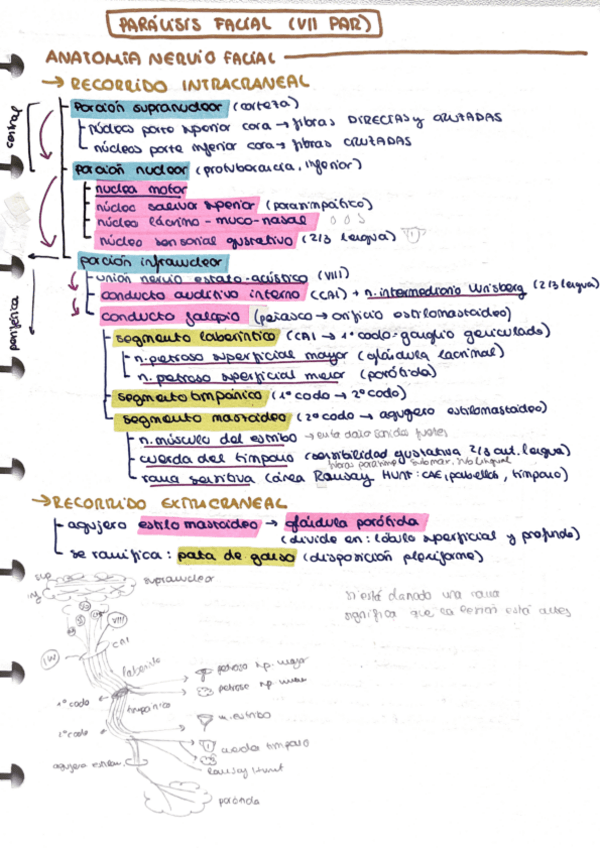 PARÁLISIS FACIAL (VII PAR)
ANATOMIA NERVIO FACIAL
→ RECORRIDO INTRACRANEAL
central
porción supranuclear (corteza)
núcleos parte superior cara → fibras DIRECTAS y CRUZADAS
núcleos parte inferior cara → fibras CRUZADAS
porción nuclear (protuberancia, inferior)
nucleo motor
núcleo salivar superior (parasimpático)
núcleo lácrimo-muco-nasal
núcleo sensorial gustativo (2/3 lengua)
periférica
porción infranuclear
unión nervio estato-acústico (VIII)
conducto auditivo interno (CAI) + n. intermediario Wrisberg (2/3 lengua)
conducto falopio (peñasco → orificio estilomastoideo)
segmento laberíntico (CAI → 1º codo-ganglio geniculado)
n. petroso superficial mayor (glándula lacrimal)
n. petroso superficial menor (parótida)
segmento timpánico (1º codo → 2º codo)
segmento mastoideo (2º codo → agujero estilomastoideo)
n. músculo del estribo → evita daño sonidos fuertes
cuerda del tímpano (sensibilidad gustativa 2/3 ant. lengua)
fibras parasimp submax, sublingual
rama sensitiva (área Ramsay HUNT: CAE, pabellón, tímpano)
→ RECORRIDO EXTRACRANEAL
agujero estilomastoideo → glándula parótida
(divide en: lóbulo superficial y profundo)
se ramifica: pata de ganso (disposición plexiforme)
sup
inf
supranuclear
si está dañado una rama
significa que la lesión está antes
VIII
CAI
IW
laberinto
petroso sup. mayor
petroso sup. menor
1º codo
timpánico
m. estribo
2º codo
cuerda tímpano
agujero estilom.
Ramsay Hunt
parótida